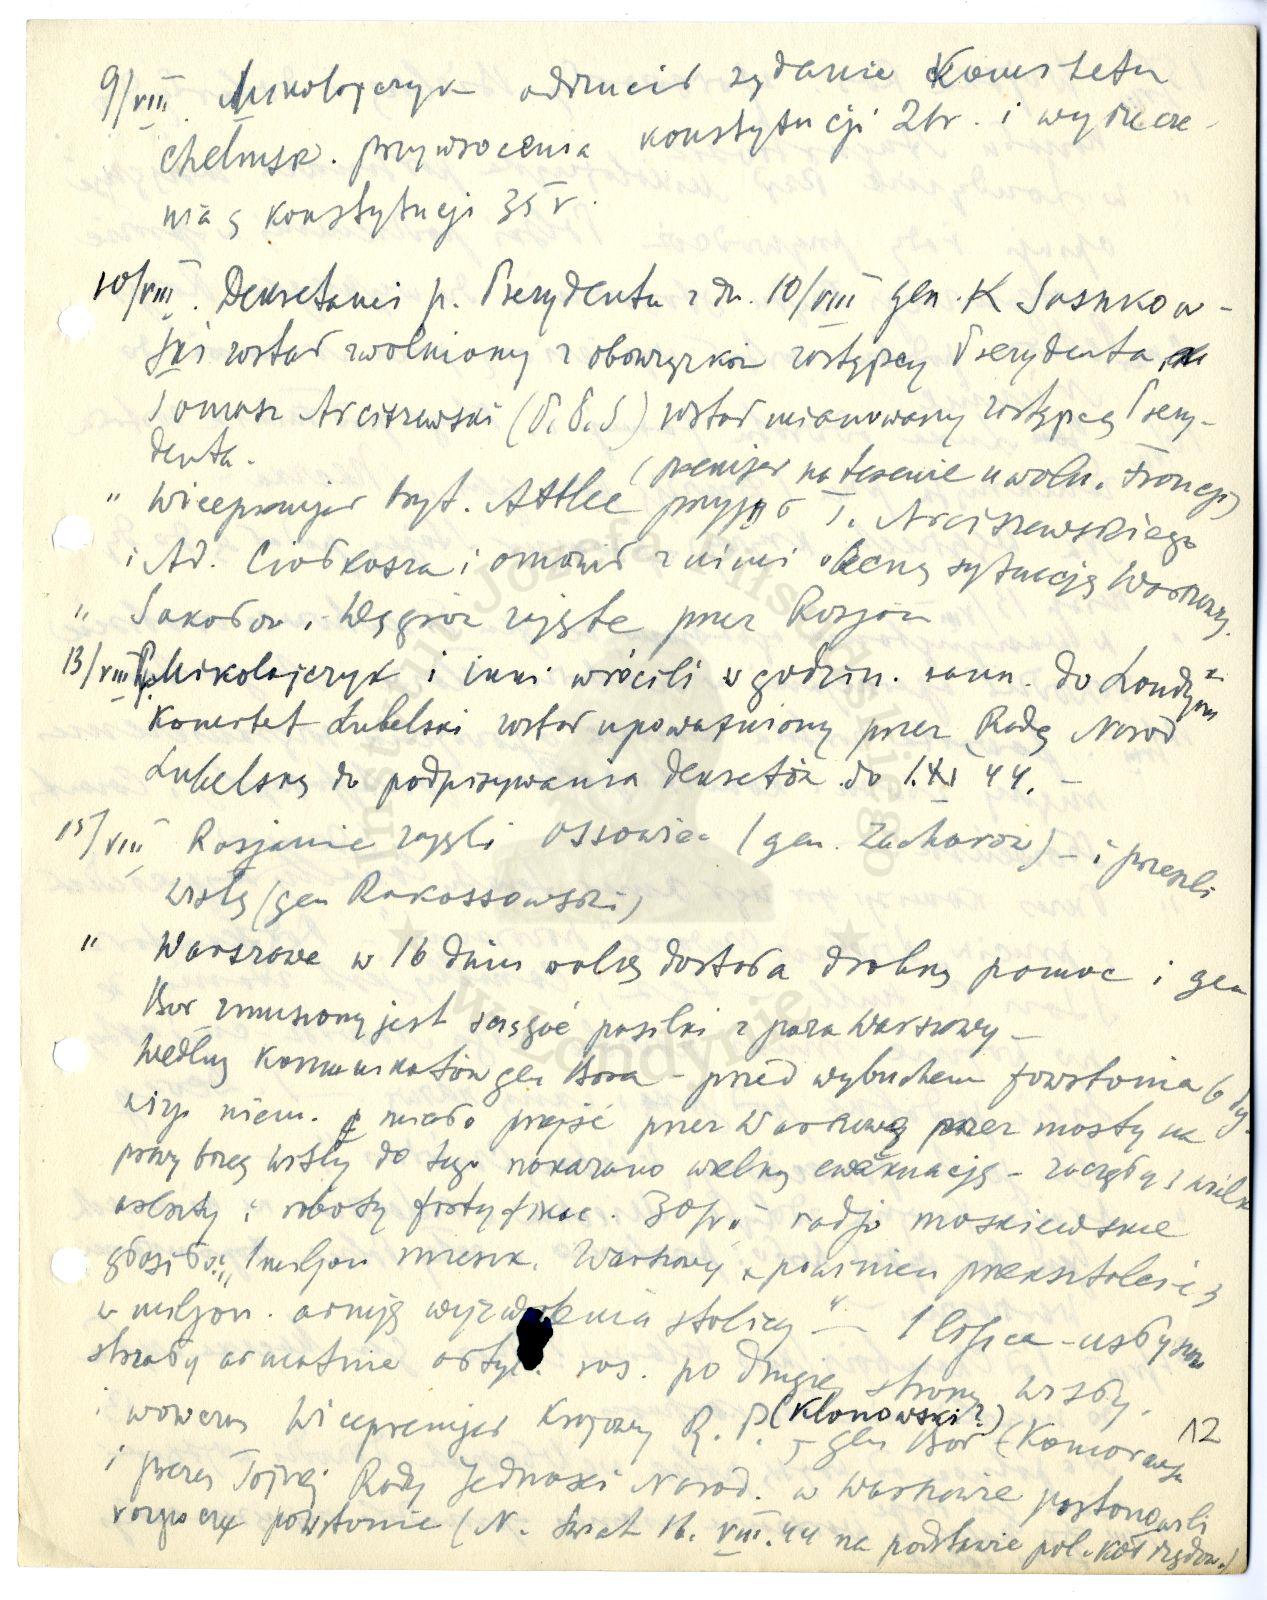 9/VIII Mikołajczyk odrzucił rządanie Komitetu
chełmsk. przywrócenia konstytucji 21r. i wyrzecze-
nia ę konstytucji 35 r.
10/VIII. Dekretami p. Prezydenta z dn. 10/VIII gen. K Sosnkow-
ski został zwolniony z obowiązków zastępcy Prezydenta,
Tomasz Arciszewski (P.P.S) został mianowany zastępcą Prezy-
denta.
(premjer na terenie uwoln. Francji)
" Wicepremjer bryt. Attlee przyjął T. Arciszewskiego
i Ad. Ciołkosza i omówił z nimi obecną sytuację Warszawy.
" Sokołów i Węgrów zajęte przez Rosjan
13/VIII P. Mikołajczyk i inni wrócili w godzin. rann. do Londynu
Komitet Lubelski został upoważniony przez Radę Narod
Lubelską do podpisywania dekretów do 1.XI 44. –
15/VIII Rosjanie zajęli Ossowiec (gen. Zacharow) – i przeszli
Wisłę (gen Rokossowski)
" Warszawa w 16 dniu walki dostała drobną pomoc i gen
Bór zmuszony jest ściągać posiłki z poza Warszawy –
Według komunikatów gen Bora – przed wybuchem powstania 6 dy-
wizji niem. miało przejść przez Warszawę przez mosty na
prawy brzeg Wisły do tego nakazano wielką ewakuację – zaczęły
i roboty fortyfikac. 30/VII radjo moskiewskie
głosiło: „1 miljon mieszk. Warszawy powinien przekształcić się
w miljon. armję wyzwolenia stolicy" – 1 lipca – usłyszano
strzały armatnie artyl. ros. po drugiej strony Wisły.
i wówczas Wicepremjer Krajowy R. P. (Klonowski?) gen Bór (Komorowski
12
i prezes Tajnej Rady Jedności Narod. w Warszawie postanowili
rozpocząć powstanie (N. Świat 16. VIII. 44 na podstawie pol. kół rządow.)